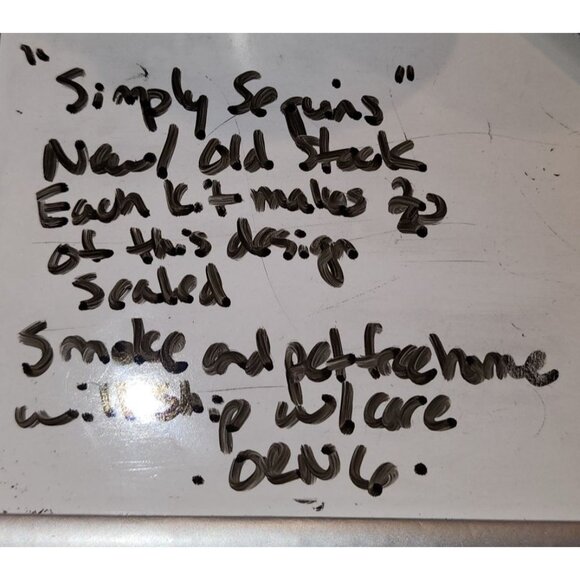 "Simply Sequins"
New/ Old Stock
Each kit makes 2
of this design
Sealed
Smoke and pet free home
will ship w/ care